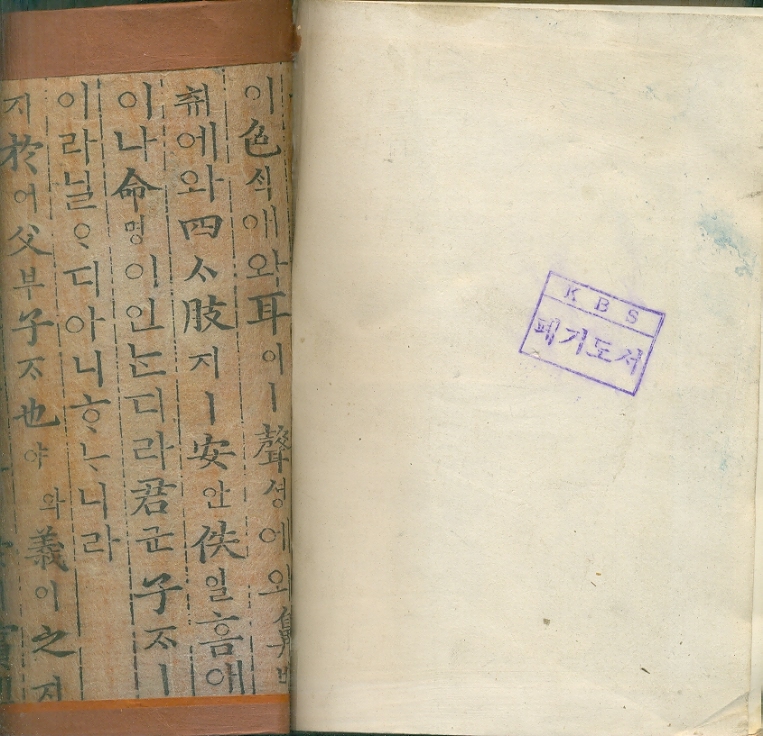 이色ᄉᆡᆨ애와耳이ㅣ聲셩에와鼻비
ᄎᆔ에와四ᄉᆞ肢지ㅣ安안佚일흠애
이나命명이인ᄂᆞᆫ디라君군子ᄌᆞㅣ
이라닐ᄋᆞ디아니ᄒᆞᄂᆞ니라
지於어父부子ᄌᆞ也야와義의之지
賓
KBS
폐기도서